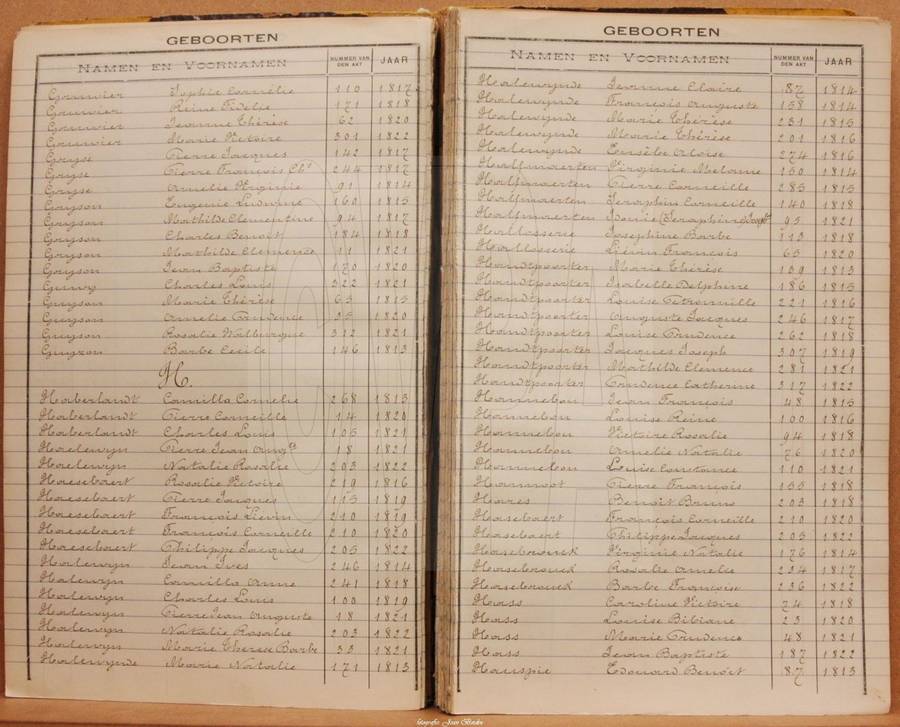 GEBOORTEN
NAMEN EN VOORNAMEN NUMMER VAN DEN AKT JAAR
Gouwier Sophie Cornélie 110 1817
Gouwier Reine Fidelje 171 1818
Gouwier Jeanne Thérèse 62 1820
Gouwier Marie Victoire 301 1822
Gryse Pierre Jacques 142 1817
Gryse Pierre François Ch. 244 1817
Gryse Amelie Virginie 91 1814
Gryson Eugenie Ludovine 160 1815
Gryson Mathilde Clementine 94 1817
Gryson Charles Benoit 184 1818
Gryson Mathilde Clemence 11 1821
Gryson Jean Baptiste 170 1820
Charles Louis 322 1821
Guyson Marie Thérèse 65 1815
Guyson Amelie Prudence 35 1820
Guyson Rosalie Walburgue 312 1821
Barbe Cecile 146 1813
H.
Haberlandt Camilla Cornelie 268 1813
Haberlandt Pierre Corneille 14 1820
Haberlandt Charles Louis 105 1821
Haelewyn Pierre Jean Aug. 18 1821
Haelewyn Natalie Rosalie 203 1822
Haesebaert Rosalie Victoire 219 1816
Haesebaert Pierre Jacques 115 1819
Haesebaert François Lievin 210 1819
Haesebaert François Corneille 210 1820
Haesebaert Philippe Jacques 205 1822
Halewyn Jean Ives 246 1814
Halewyn Camilla Anne 241 1818
Halewyn Charles Louis 100 1819
Halewyn Pierre Jean Auguste 18 1821
Halewyn Natalie Rosalie 203 1822
Halewyn Marie Therese Barbe 35 1821
Halewynde Marie Natalie 171 1813
GEBOORTEN
NAMEN EN VOORNAMEN NUMMER VAN DEN AKT JAAR
Halewynde Jeanne Claire 87 1814
Halewynde François Auguste 158 1814
Halewynde Marie Thérèse 231 1815
Halewynde Marie Thérèse 201 1816
Halewynde Eusèbe Aloise 274 1816
Halfmaerten Virginie Melanie 150 1814
Halfmaerten Pierre Corneille 285 1815
Halfmaerten Seraphin Corneille 140 1818
Halfmaerten (Seraphine) 95 1821
Hallosserie Josephine Barbe 113 1818
Hallosserie Liévin François 65 1820
Handtpoorter Marie Thérèse 139 1813
Handtpoorter Isabelle Delphine 186 1815
Handtpoorter Louise Petronille 221 1816
Handtpoorter Auguste Jacques 246 1817
Handtpoorter Louise Prudence 262 1818
Handtpoorter Jacques Joseph 307 1819
Handtpoorter Mathilde Clemence 281 1821
Handtpoorter Prudence Catherine 317 1822
Hannebou Jean François 48 1815
Hannebou Louise Reine 100 1816
Hannebou Victoire Rosalie 94 1818
Hannebou Amelie Natalie 76 1820
Hannebou Louise Constance 110 1821
Hannoot Pierre François 155 1818
Hares Benoit Bruno 203 1818
Hasebaert François Corneille 210 1820
Hasebaert Philippe Jacques 205 1822
Hasebrouck Virginie Natalie 176 1814
Hasebrouck Rosalie Amelie 234 1817
Hasebrouck Barbe Françoise 236 1822
Hass Caroline Victoire 74 1818
Hass Louise Bibiane 23 1820
Hass Marie Prudence 48 1821
Hass Jean Baptiste 187 1822
Hauspie Edouard Benoit 87 1813